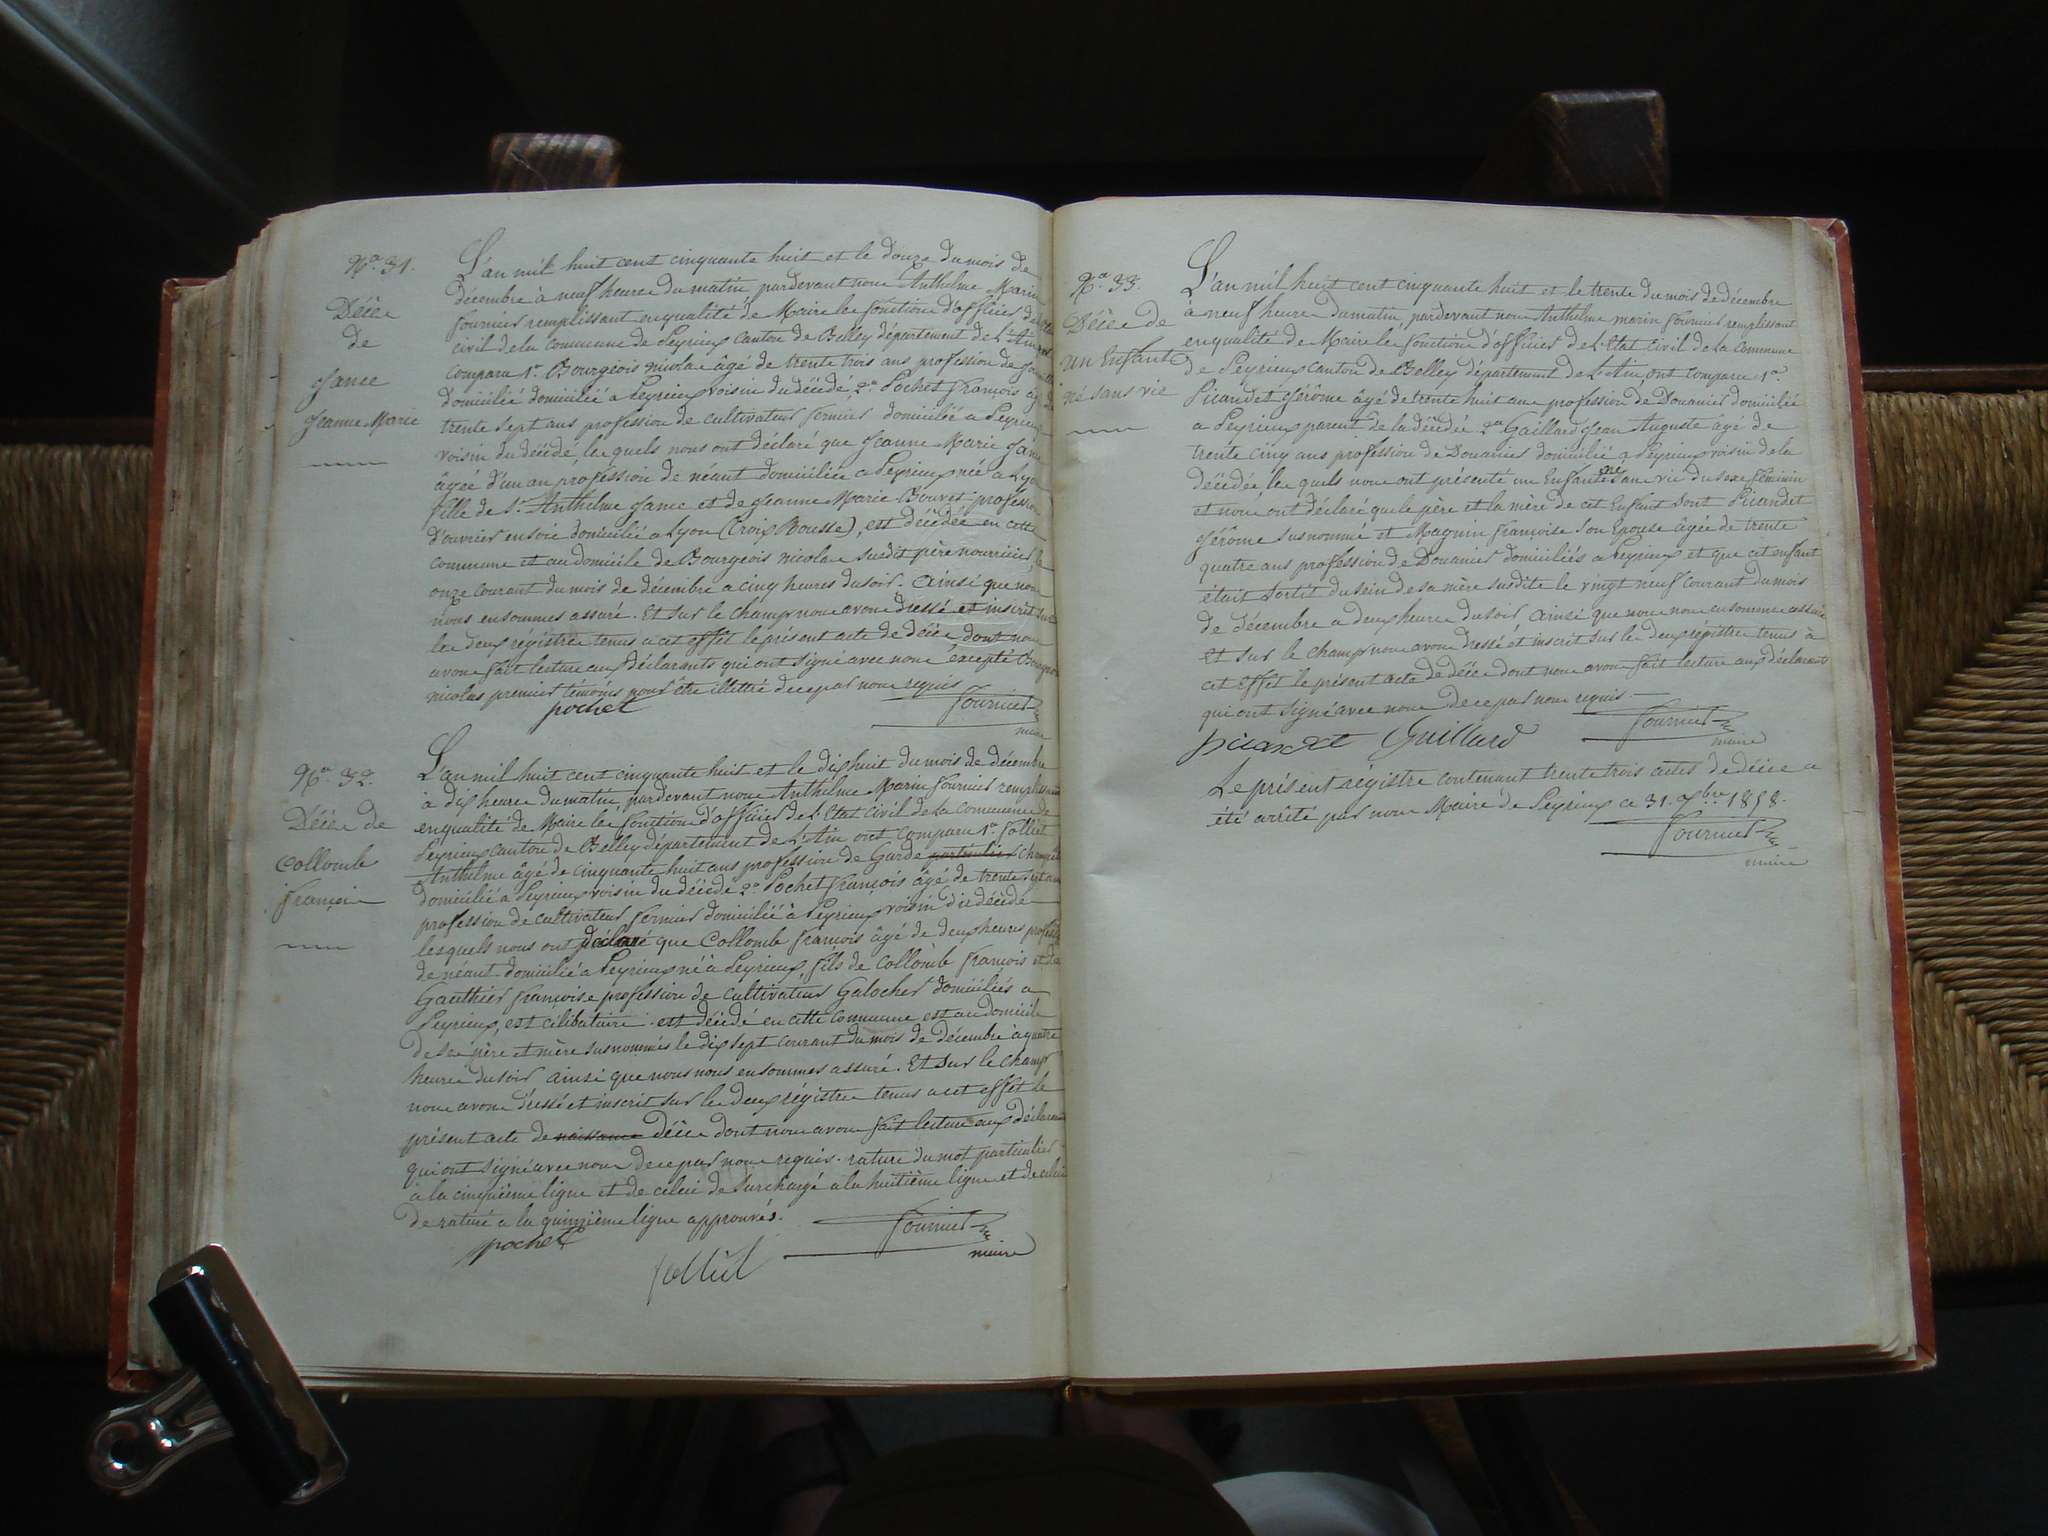 N° 31.
Décès
de
Jance
Jeanne Marie
L'an mil huit cent cinquante huit et le douze du mois de
décembre à neuf heures du matin pardevant nous Anthelme Marin
fournier remplissant en qualité de Maire les fonctions d'officier de l'état
civil de la commune de Peyrieux Canton de Belley département de l'Ain ont
comparu 1° Bourgeois nicolas âgé de trente trois ans profession de
domicilié domicilié à Peyrieux voisin du décédé, 2° Pochet françois âgé de
trente sept ans profession de cultivateur fermier domicilié a Peyrieux
voisin du décédé, lesquels nous ont déclaré que Jeanne Marie Jance
âgée d'un an profession de néant domiciliée a Peyrieux née a Lyon
fille de Sr Anthelme Jance et de Jeanne Marie Bouvet profession
d'ouvrier en soie domicilié a Lyon (Croix Rousse), est décédée en cette
commune et au domicile de Bourgeois nicolas susdit père nourricier, le
onze courant du mois de décembre a cinq heures du soir. Ainsi que nous
nous en sommes assuré. Et sur le champ nous avons dressé et inscrit sur
les deux régistres tenus a cet effet le présent acte de décès dont nous
avons fait lecture aux déclarants qui ont signé avec nous excepté Bourgeois
nicolas premier témoins pour être illettré de ce par nous requis
pochet
fournier
maire
N° 32.
Décès de
Collomb
françois
L'an mil huit cent cinquante huit et le dix huit du mois de décembre
à dix heures du matin, pardevant nous Anthelme Marin fournier remplissant
en qualité de Maire les fonctions d'officier de l'Etat Civil de la commune de
Peyrieux canton de Belley département de L'Ain ont comparu 1° folliet
Anthelme âgé de cinquante huit ans profession de Garde particulier champêtre
domicilié à Peyrieux voisin du décédé 2° Pochet françois âgé de trente sept ans
profession de cultivateur fermier domicilié à Peyrieux voisin du décédé
lesquels nous ont déclaré que Collomb françois âgé de deux heures profession
de néant domicilié a Peyrieux né à Peyrieux, fils de Collomb françois et de
Gauthier françoise profession de cultivateur Galocher domiciliés a
Peyrieux, est célibataire. est décédé en cette commune est au domicile
de ses père et mère susnommés le dix sept courant du mois de décembre à quatre
heures du soir ainsi que nous nous en sommes assuré. Et sur le champ
nous avons dressé et inscrit sur les deux régistres tenus a cet effet le
présent acte de naissance décès dont nous avons fait lecture aux déclarants
qui ont signé avec nous de ce par nous requis. rature du mot particulier
à la cinquième ligne et de celui de surchargé a la huitième ligne et de celui
de raturé a la quinzième ligne approuvés.
pochet
folliet
fournier
maire
N° 33.
Décès de
un Enfant
né sans vie
L'an mil huit cent cinquante huit et le trente du mois de décembre
à neuf heures du matin pardevant nous Anthelme marin fournier remplissant
en qualité de Maire les fonctions d'officier de l'Etat Civil de la Commune
de Peyrieux canton de Belley département de L'Ain, ont comparu 1°
Picandet Jérôme âgé de trente huit ans profession de Douanier domicilié
a Peyrieux parent de la décédée 2° Gaillard Jean Auguste âgé de
trente cinq ans profession de Douanier domicilié a Peyrieux voisin de la
décédée, lesquels nous ont présenté un Enfant né sans vie du sexe féminin
et nous ont déclaré que le père et la mère de cet Enfant sont Picandet
Jérôme susnommé et Magnin françoise son Epouse âgée de trente
quatre ans profession de Douanier domiciliés a Peyrieux et que cet enfant
était sortit du sein de sa mère susdite le vingt neuf courant du mois
de décembre a deux heures du soir ainsi que nous nous en sommes assuré
Et sur le champ nous avons dressé et inscrit sur les deux régistres tenus à
cet effet le présent acte de décès dont nous avons fait lecture aux déclarants
qui ont signé avec nous de ce par nous requis.
picandet Guillard
fournier
maire
Le présent régistre contenant trente trois actes de décès a
été arrêté par nous Maire de Peyrieux ce 31. Xbre 1858.
fournier
maire